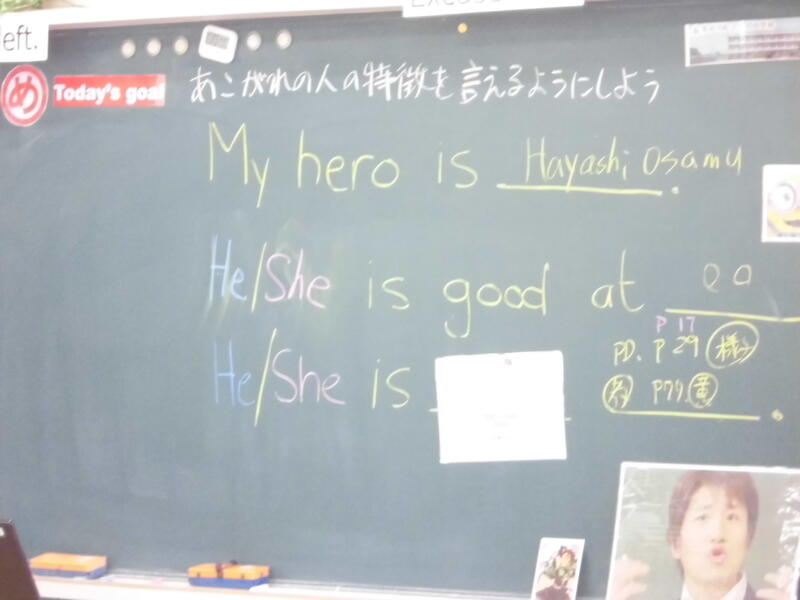 left.
め Today's goal あこがれの人の特徴を言えるようにしよう
My hero is Hayashi Osamu.
He/She is good at
P 17
PD. P 29 様子
He/She is
P79. 黄